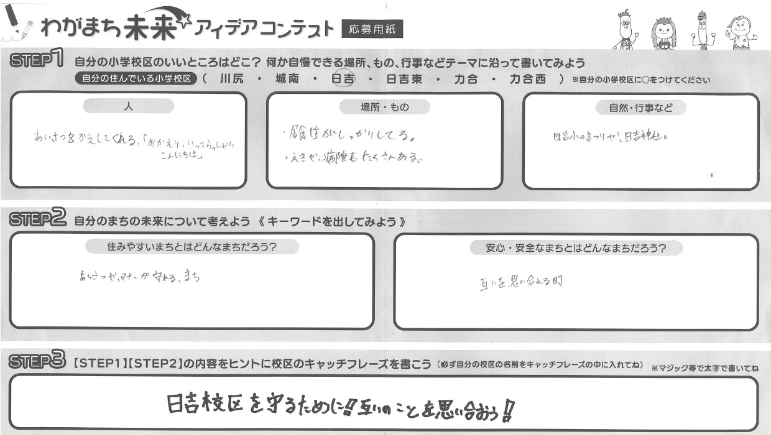 わがまち未来アイデアコンテスト 応募用紙
STEP1 自分の小学校区のいいところはどこ? 何か自慢できる場所、もの、行事などテーマに沿って書いてみよう
自分の住んでいる小学校区 ( 川尻 ・ 城南 ・ 日吉 ・ 日吉東 ・ 力合 ・ 力合西 ) ※自分の小学校区に○をつけてください
人
あいさつをかえしてくれる、「おかえり、いってらっしゃい
こんにちは」
場所・もの
・しっかりしてる。
・えきや、病院もたくさんある。
自然・行事など
日吉小のまつりや、日吉神社
STEP2 自分のまちの未来について考えよう 《 キーワードを出してみよう 》
住みやすいまちとはどんなまちだろう?
あいさつや、マナーが守れる、まち
安心・安全なまちとはどんなまちだろう?
互いを、思い合える町
STEP3 【STEP1】【STEP2】の内容をヒントに校区のキャッチフレーズを書こう (必ず自分の校区の名前をキャッチフレーズの中に入れてね) ※マジック等で太字で書いてね
日吉校区を守るために!!互いのことを思い合おう!!